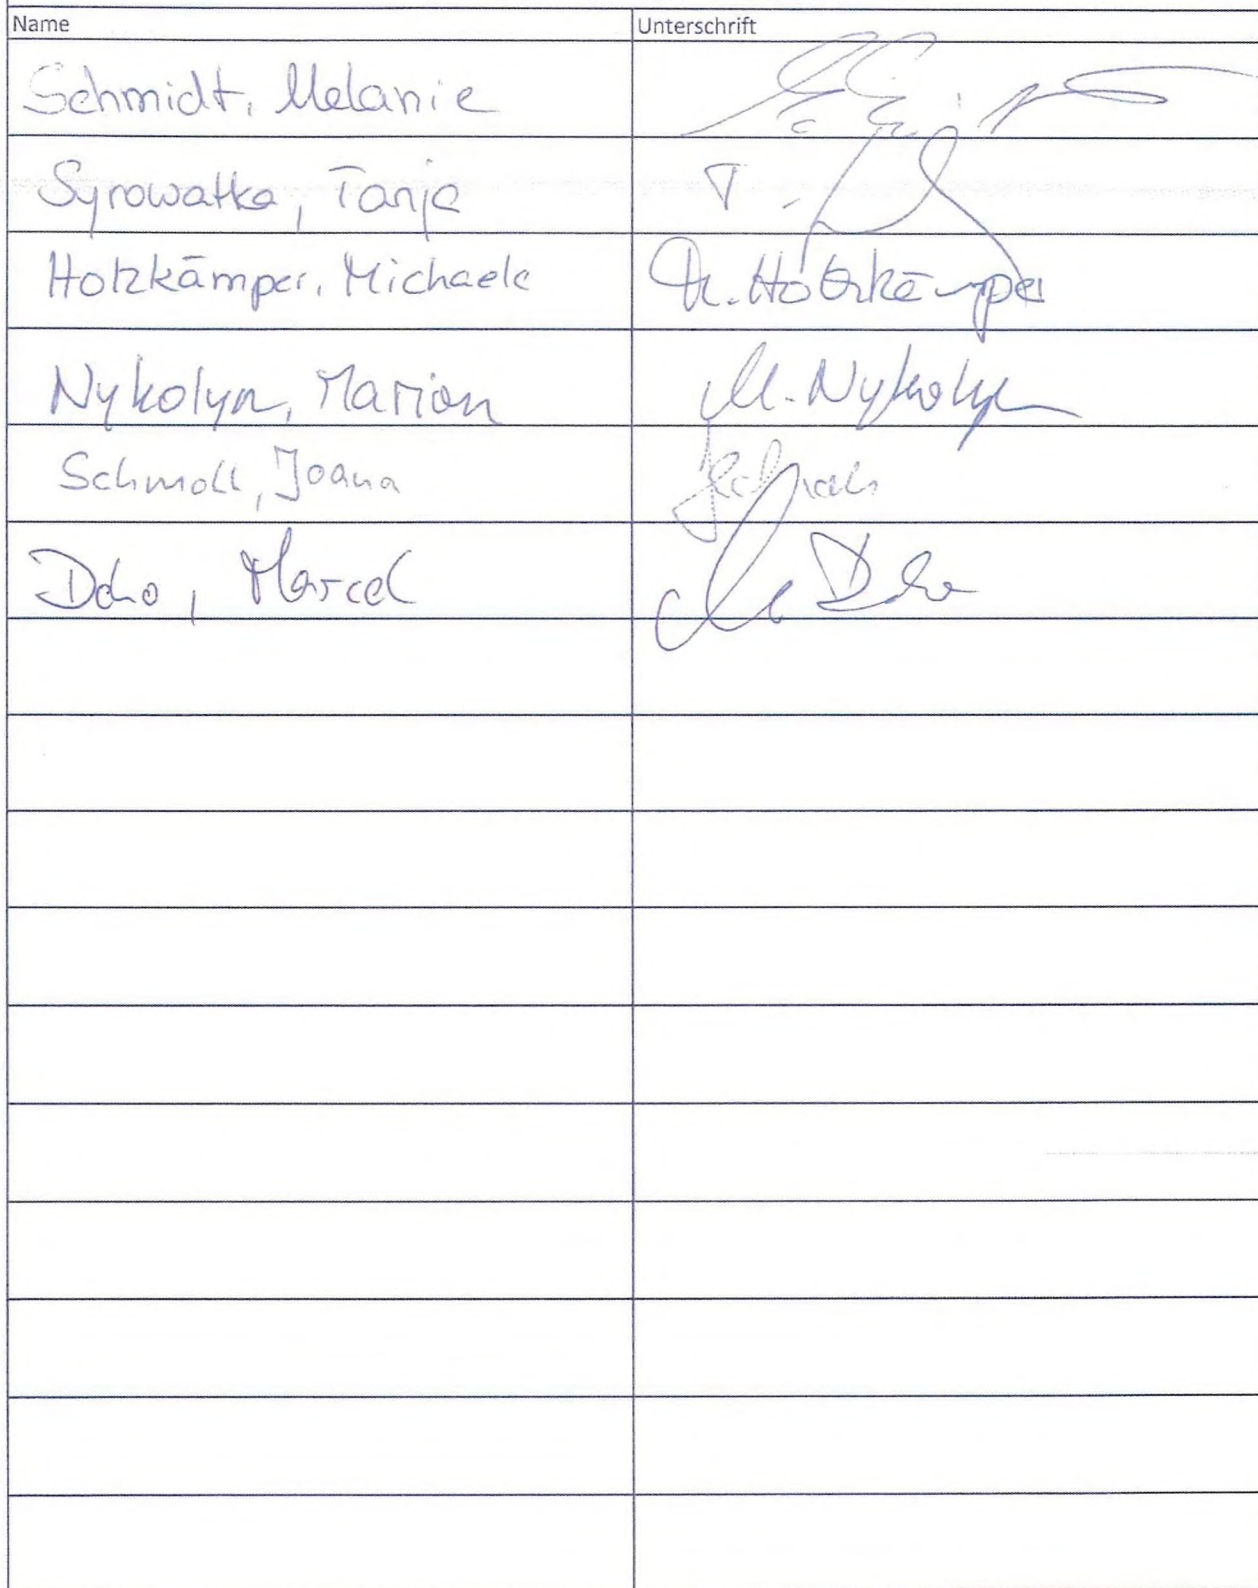 Name Unterschrift
Schmidt, Melanie
Syrowatka, Tanja T.
Holzkämper, Michaela M. Holzkämper
Nykolyn, Marion M. Nykolyn
Schmoll, Joana
Marcel